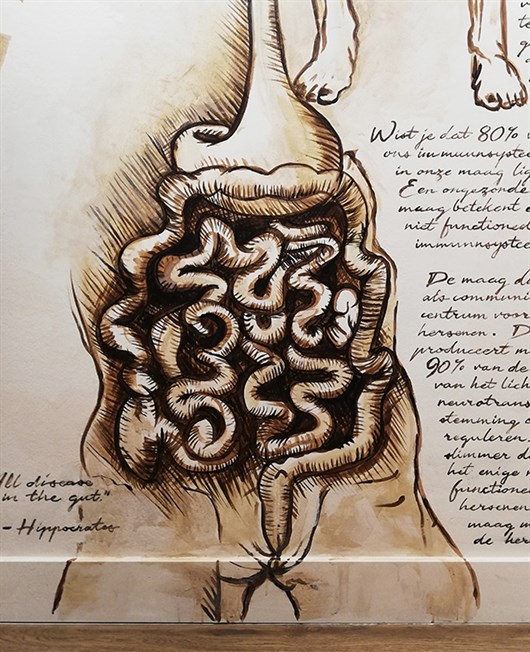 Wist je dat 80%
ons immuunsystee
in onze maag lig
Een ongezonde
maag betekent
niet functioned
immuunsystee
De maag di
als commun
centrum voor
hersenen. D
produceert m
90% van de
van het lich
neurotrans
stemming
reguleren.
slimmer d
het enige
functione
hersenen
maag
de her
All disease
in the gut"
- Hippocrates